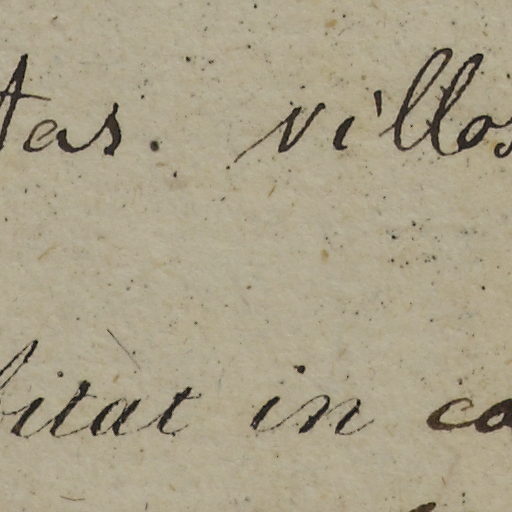 tas. villos
bitat in ca